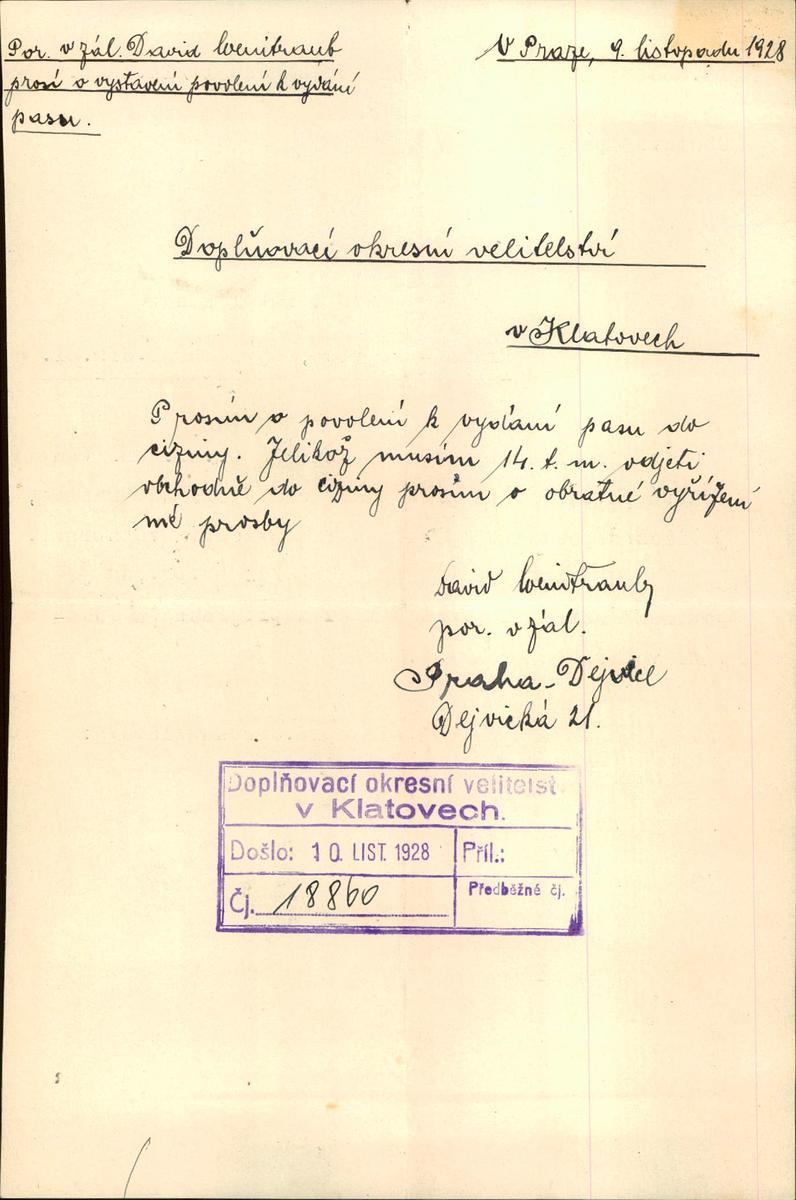 Por. v zál. David Weintraub
V Praze, 9. listopadu 1928
prosí o vystavení povolení k vydání
pasu.
Doplňovací okresní velitelství
v Klatovech
Prosím o povolení k vydání pasu do
ciziny. Jelikož musím 14. t. m. odjeti
obchodně do ciziny prosím o obratné vyřízení
mé prosby
David Weintraub
por. v zál.
Praha - Dejvice
Dejvická 21.
Doplňovací okresní velitelst
v Klatovech.
Došlo: 10. LIST. 1928 Příl.:
Čj. 18860 Předběžné čj.